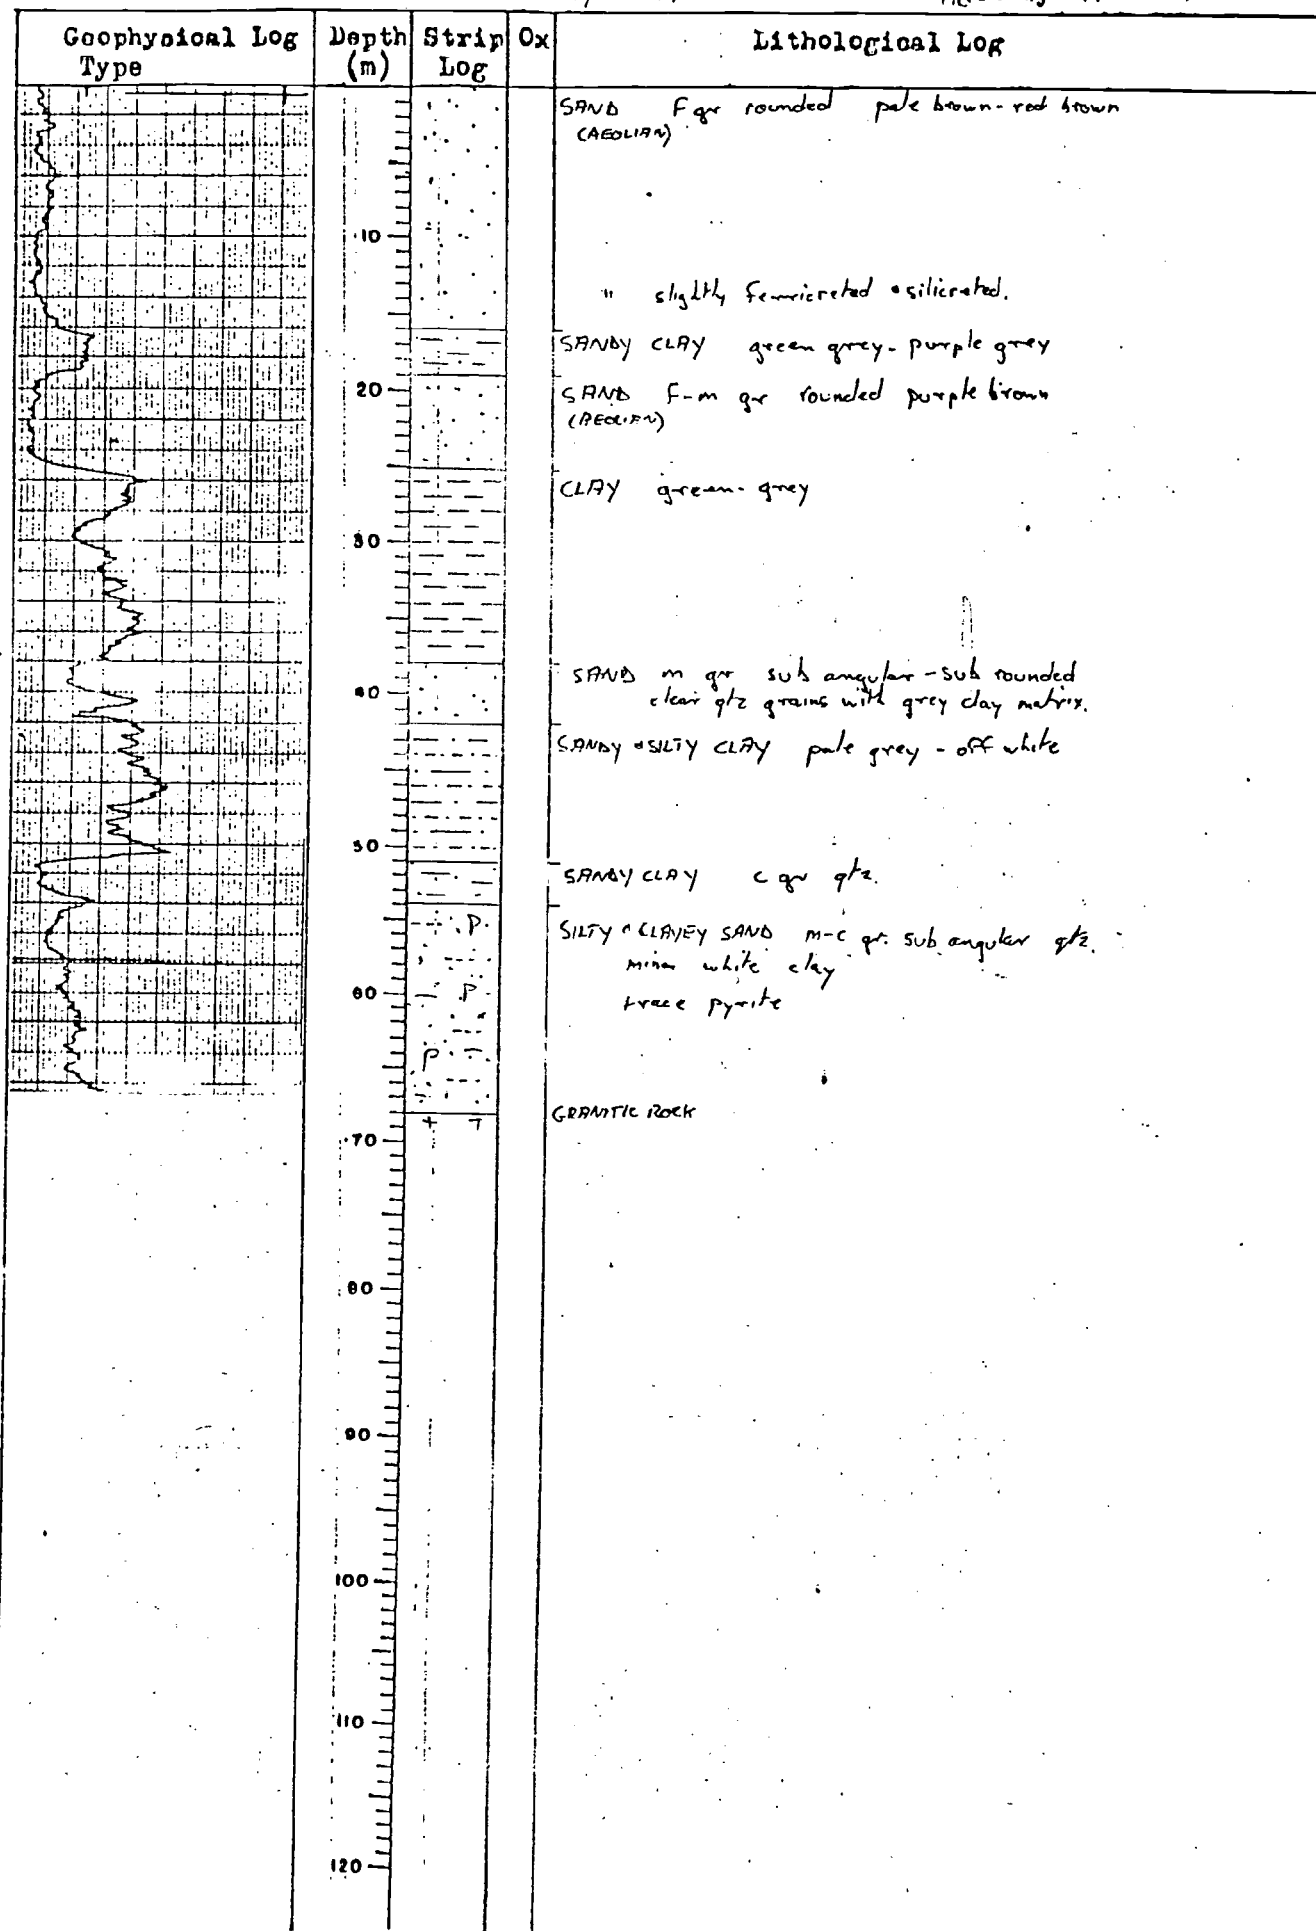 Geophysical Log
Type
Depth
(m)
Strip
Log
Ox
Lithological Log
SAND F gr rounded pale brown-red brown
(AEOLIAN)
10
" slightly ferricreted & silicreted.
SANDY CLAY green grey - purple grey
20
SAND F-m gr rounded purple brown
(AEOLIAN)
CLAY green-grey
30
SAND m gr sub angular - sub rounded
40
clear qtz grains with grey clay matrix.
SANDY & SILTY CLAY pale grey - off white
50
SANDY CLAY c gr qtz.
P
SILTY & CLAYEY SAND m-c gr. sub angular qtz.
minor white clay
60
P
trace pyrite
P
GRANITIC ROCK
70
80
90
100
110
120